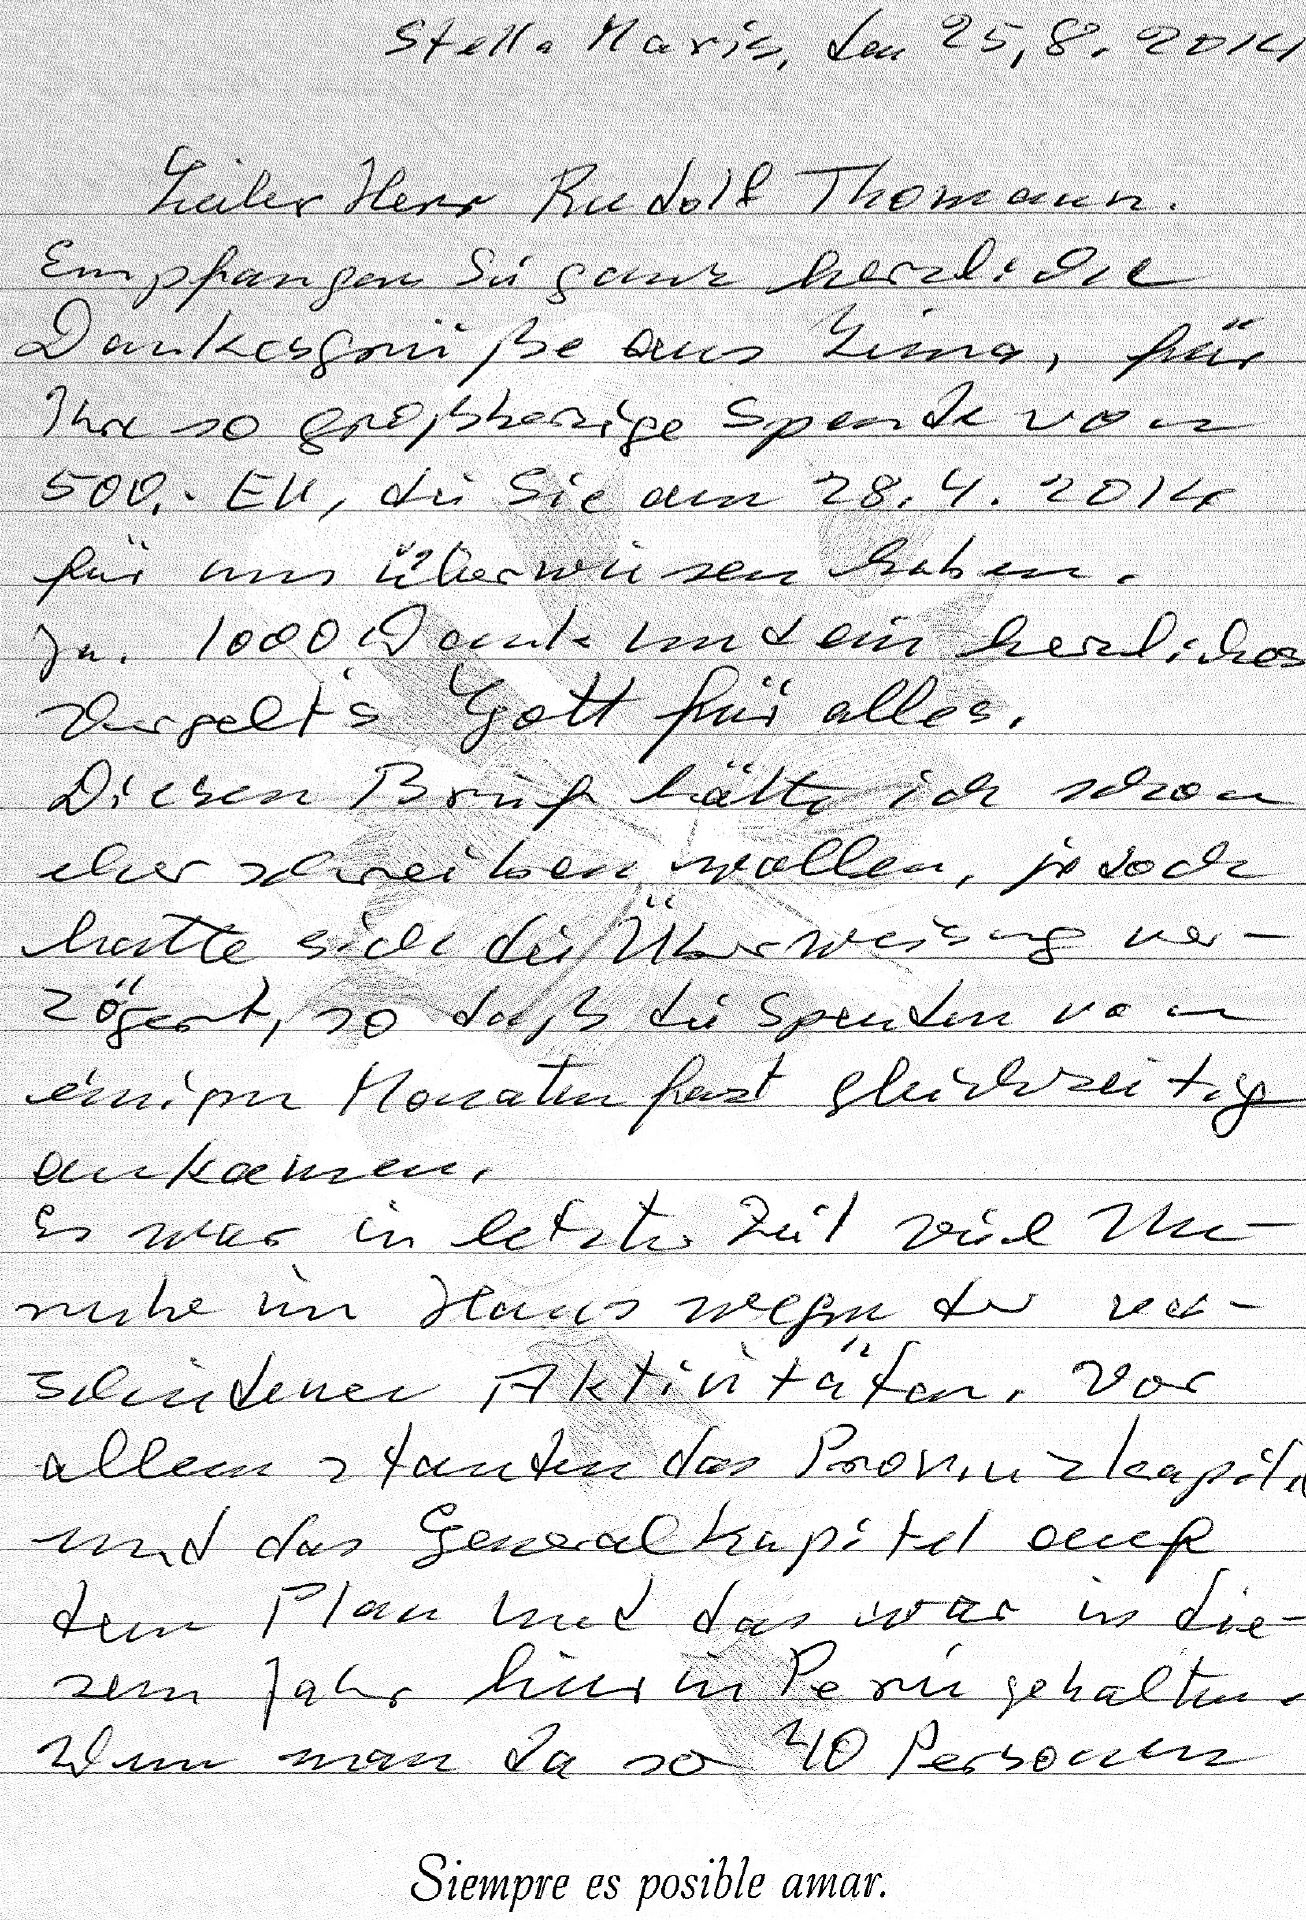 Stella Maris, den 25,8. 2014
Lieber Herr Rudolf Thomann.
Empfangen Sie ganz herzliche
Dankesgrüße aus Lima, für
Ihre so großherzige Spende von
500,- EU, die Sie am 28.4.2014
für uns überwiesen haben.
Ja. 1000 Dank und ein herzliches
Vergelt's Gott für alles.
Diesen Brief hätte ich schon
eher schreiben wollen, jedoch
hatte sich die Überweisung ver-
zögert, so daß die Spenden von
einigen Monaten fast gleichzeitig
ankamen.
Es war in letzter Zeit viel Un-
ruhe im Haus wegen der ver-
schiedenen Aktivitäten. Vor
allem standen das Provinzkapitel
und das Generalkapitel auf
dem Plan und das war in die-
sem Jahr hier in Perú gehalten.
Wenn man da so 40 Personen
Siempre es posible amar.